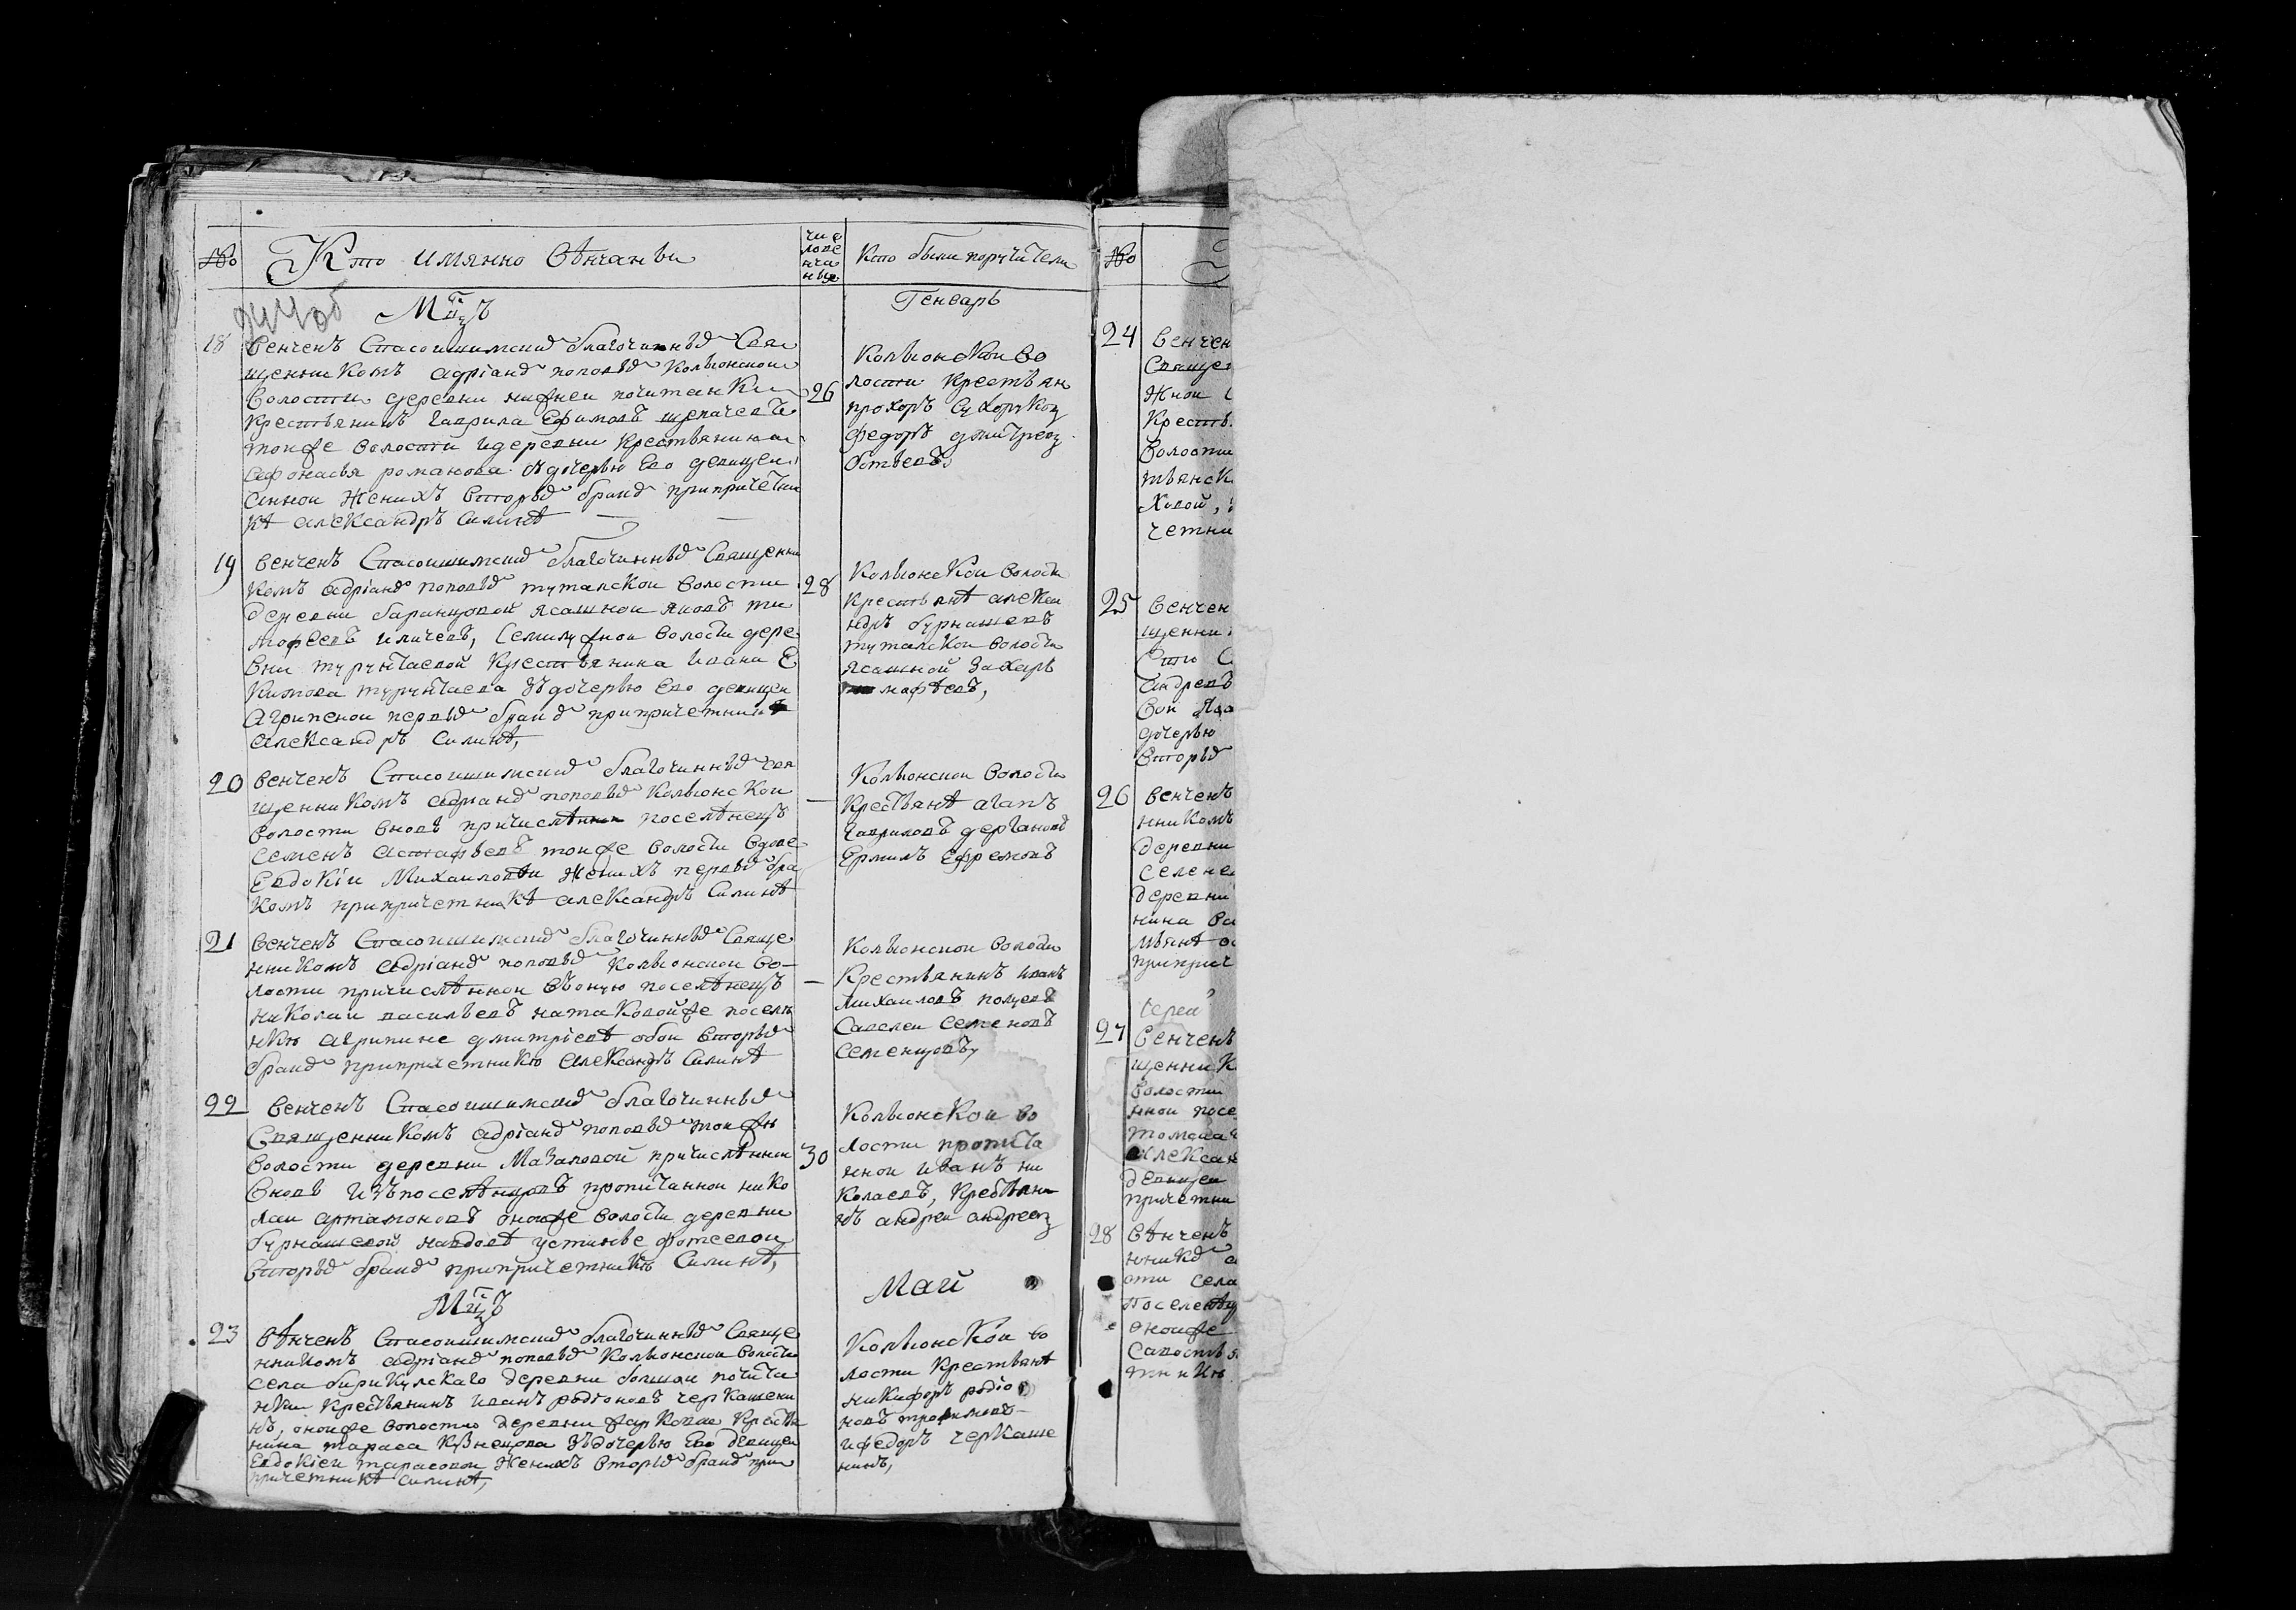 №
Кто имянно венчаны
чи
сло ве
нча
ния
Кто были поручители
№
Мцъ
Генварь
18
венченъ Спасоишимскимъ благочиннымъ Свя
щенникомъ адріаномъ поповымъ Колыонской
волости деревни нижней почитанки
крестьянинъ гаврила Ефимовъ щепачевъ
тоиже волости идеревни крестьянина
афонасья романова здочерью Его девицеи
анной Женихъ вторымъ бракомъ припричетни
кѣ александръ Силинѣ
26
Колыонской во
лости крестьян
прохоръ Сухоруков
федоръ дмитреев
ботвевъ
19
венченъ Спасоишимскимъ благочиннымъ Священни
комъ адріаномъ поповымъ туталской волости
деревни баранцовой ясашной яковъ ти
мофеевъ иличевъ, Семилужной волости дере
вни турунтаевой крестьянина ивана Е
кимова турунтаева здочерью Ево девицеи
агрипеной первымъ бракомъ припричетникѣ
александръ Силинѣ,
28
Колыонской волости
крестьянѣ алекса
ндръ бурнашевъ
туталской волости
ясашной Захаръ
мафѣевъ,
20
венченъ Спасоишимскимъ благочиннымъ свя
щенникомъ адріаномъ поповымъ Колыонской
волости вновь причислѣнной поселѣнецъ
семенъ астафьевъ тоиже волости вдове
Евдокіи Михаиловѣи Женихъ первымъ бра
комъ припричетникѣ александръ Силинѣ
—
Колыонской волости
Крестьянѣ агапъ
гавриловъ дергановъ
Ермилъ Ефремовъ
21
венченъ Спасоишимскимъ благочиннымъ Свяще
нникомъ адріаномъ поповымъ Колыонской во-
лости причислѣнной въоную поселѣнецъ
николаи васильевъ натаковойже поселѣ
нкѣ агрипине дмитріевѣ обои вторымъ
бракомъ припричетникѣ александръ Силинѣ
—
Колыонской волости
Крестьянинъ иванъ
михаиловъ полуев
Савелеи Семеновъ
Семенцовъ,
22
венченъ Спасоишимскимъ благочиннымъ
Священникомъ адріаномъ поповымъ тоижѣ
волости деревни Мазаловой причислѣнной
вновь изъпоселѣнцовъ пропитанной нико
лаи артамоновъ оноиже волости деревни
бурнашевой навдовѣ устинье фотеевой
вторымъ бракомъ припричетникѣ Силинѣ,
30
Колыонской во
лости пропита
нной иванъ ни
колаевъ, крестьяни
нъ андреи андреев
Мцъ
Май
23
вѣнченъ Спасоишимскимъ благочиннымъ Свяще
нникомъ адріаномъ поповымъ Колыонской волости
села бирикулскаго деревни болшои почита
нки крестьянинъ иванъ родіоновъ черкашени
нъ, оноиже волости деревни жарковои крестья
нина тараса Кузнецова здочерью Ево девицеи
Евдокіеи тарасовой Женихъ вторымъ бракомъ при
причетникѣ Силинѣ,
Колыонской во
лости крестьянѣ
никифоръ родіо
новъ трофимовъ
ифедоръ черкаше
нинъ,
24
венчен
Священ
Жнои
Крестья
Волости
тьянск
Ховой,
четни
25
венчен
щенни
Андревъ
дочерью
вторымъ
26
венченъ
нникомъ
деревни
селене
деревни
нина ва
приприч
27
венченъ
щенник
Волости
нной посе
Алексан
девицеи
причетни
28
вѣнченъ
сти села
Поселѣнц
оноиже